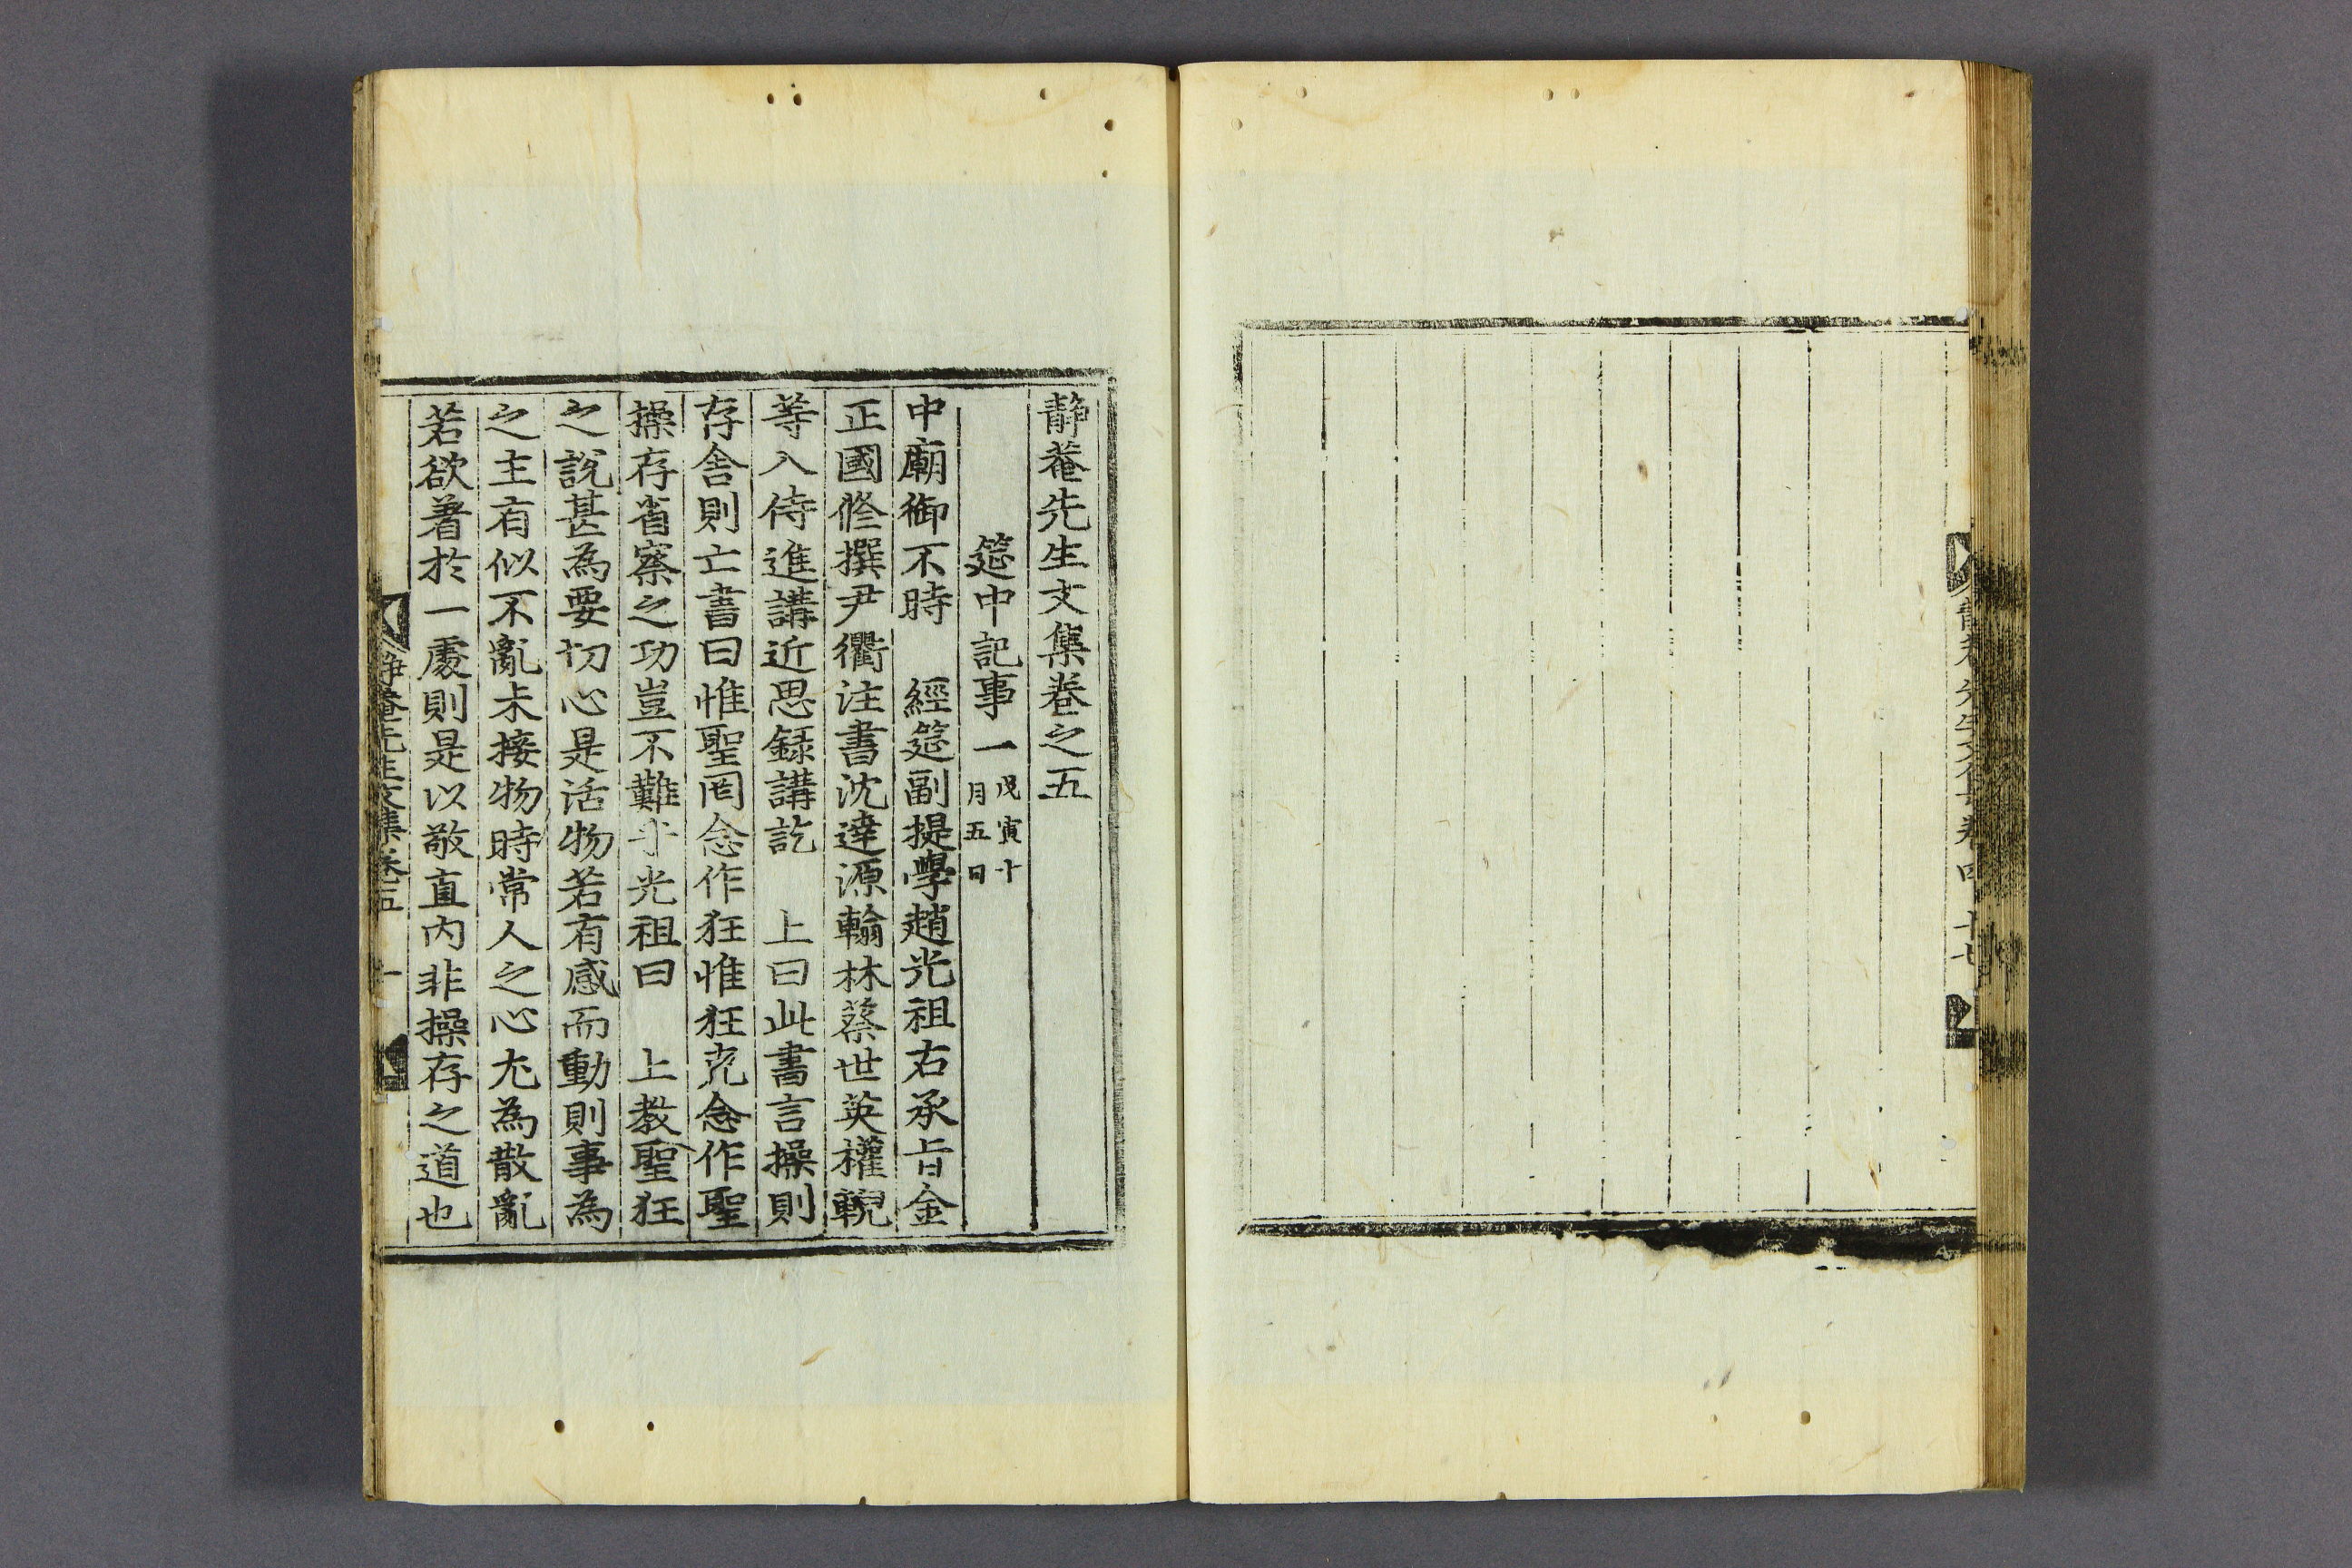 靜菴先生文集卷之五
筵中記事一 戊寅十
月五日
中廟御不時 經筵副提學趙光祖右承旨金
正國修撰尹衢注書沈達源翰林蔡世英權輗
等入侍進講近思錄講訖 上曰此書言操則
存舍則亡書曰惟聖罔念作狂惟狂克念作聖
操存省察之功豈不難乎光祖曰 上教聖狂
之說甚為要切心是活物若有感而動則事為
之主有似不亂未接物時常人之心尤為散亂
若欲著於一處則是以敬直內非操存之道也
靜菴先生文集卷五 一
先生文集卷四 十七